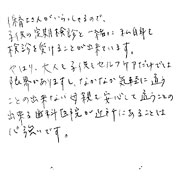 保育士さんがいらっしゃるので、
子供の定期検診と一緒に私自身も
検診を受けることが出来ています。
やはり、大人も子供もセルフケアだけでは
限界がありますし、なかなか気軽に通う
ことの出来ない母親も安心して通うことの
出来る歯科医院が近所にあることは
心強いです。